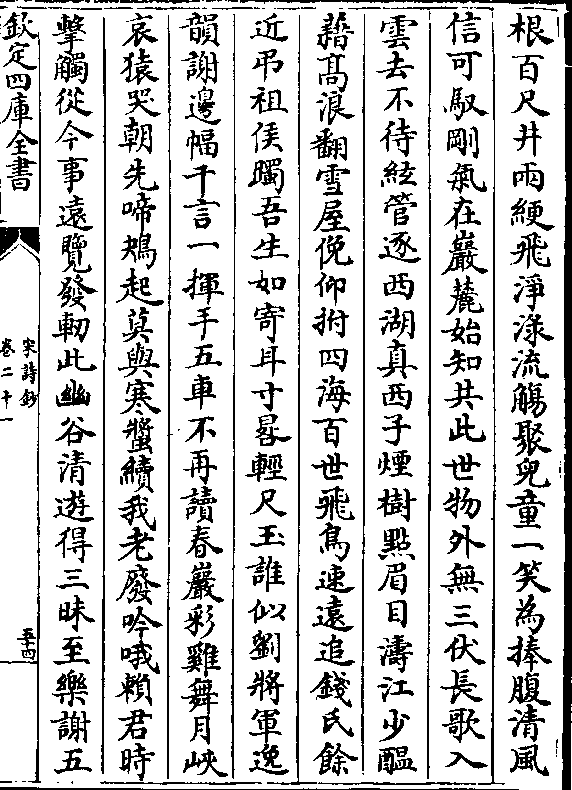 根百尺井兩綆飛淨淥流觴聚兒童一笑為捧腹清風
信可馭剛氣在巖麓始知共此世物外無三伏長歌入
雲去不待絃管逐西湖真西子煙樹點眉目濤江少醖
藉高浪翻雪屋俛仰拊四海百世飛鳥速遠追錢氏餘
近弔祖侯躅吾生如寄耳寸晷輕尺玉誰似劉將軍逸
韻謝邊幅千言一揮手五車不再讀春巖彩雞舞月峽
哀猿哭朝先啼鴂起莫與寒螿續我老廢吟哦賴君時
擊觸從今事遠覽發軔此幽谷清遊得三昧至樂謝五
欽定四庫全書
宋詩鈔
卷二十一
五十四